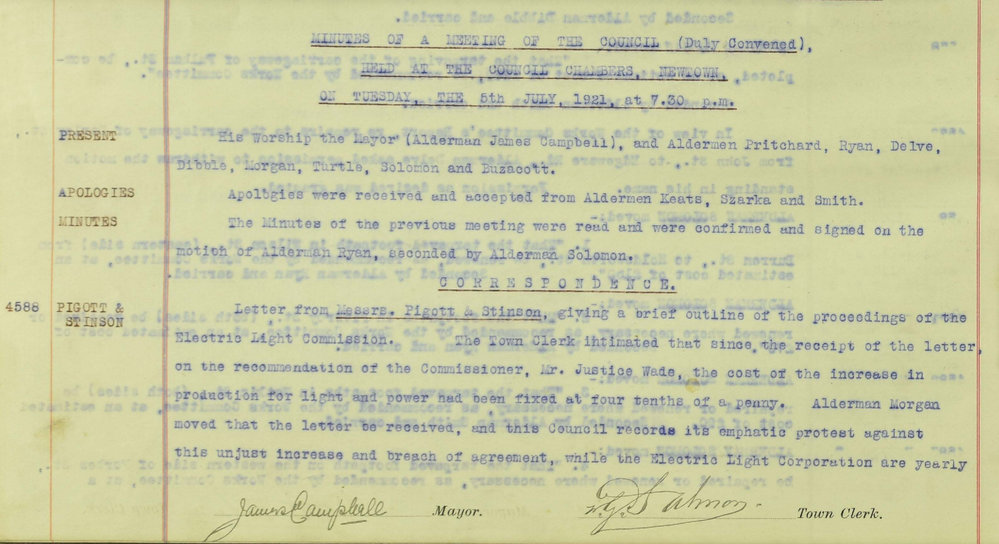 MINUTES OF A MEETING OF THE COUNCIL (Duly Convened),
HELD AT THE COUNCIL CHAMBERS, NEWTOWN,
ON TUESDAY, THE 5th JULY, 1921, at 7.30 p.m.
PRESENT His Worship the Mayor (Alderman James Campbell), and Aldermen Pritchard, Ryan, Delve,
Dibble, Morgan, Turtle, Solomon and Buzacott.
APOLOGIES Apologies were received and accepted from Aldermen Keats, Szarka and Smith.
MINUTES The Minutes of the previous meeting were read and were confirmed and signed on the
motion of Alderman Ryan, seconded by Alderman Solomon.
CORRESPONDENCE.
4588 PIGOTT & Letter from Messrs. Pigott & Stinson, giving a brief outline of the proceedings of the
STINSON Electric Light Commission. The Town Clerk ihtimated that since the receipt of the letter,
on the recommendation of the Commissioner, Mr. Justice Wade, the cost of the increase in
production for light and power had been fixed at four tenths of a penny. Alderman Morgan
moved that the letter be received, and this Council records its emphatic protest against
this unjust increase and breach of agreement, while the Electric Light Corporation are yearly
James Campbell Mayor. Salmon. Town Clerk.